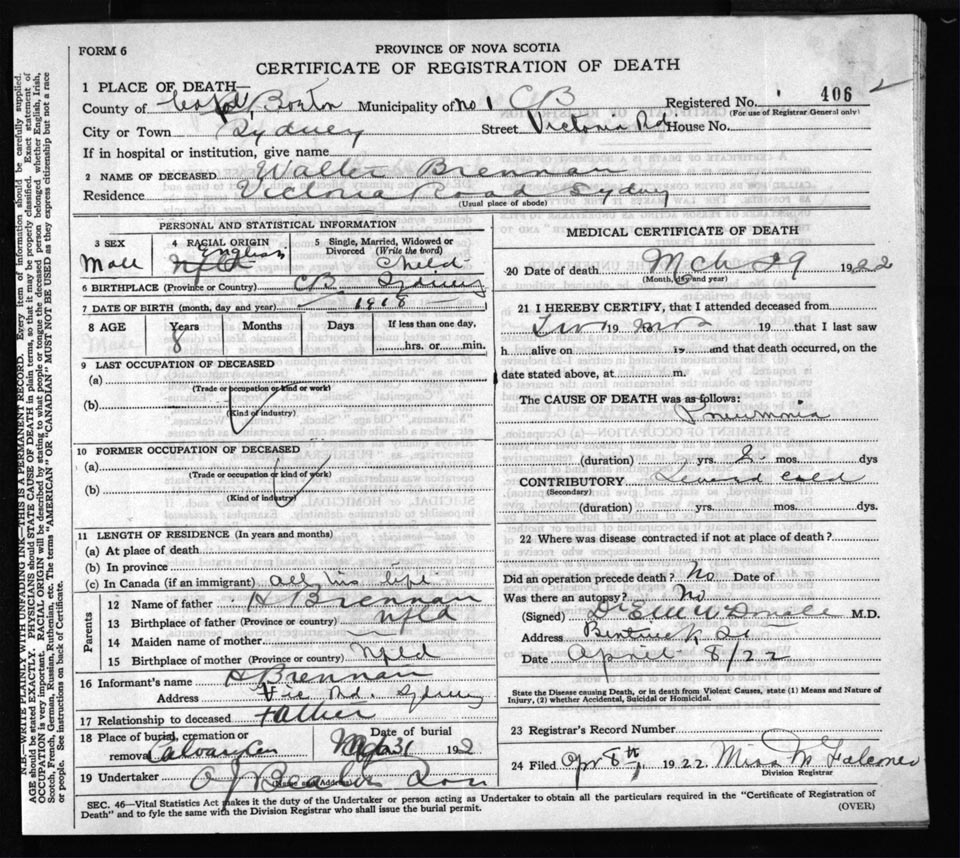 FORM 6
PROVINCE OF NOVA SCOTIA
CERTIFICATE OF REGISTRATION OF DEATH
1 PLACE OF DEATH—
County of Breton Municipality of No 1 CB Registered No. 406
(For use of Registrar General only)
City or Town Sydney Street Victoria Rd House No.
If in hospital or institution, give name
2 NAME OF DECEASED Walter Brennan
Residence Victoria Road Sydney
(Usual place of abode)
PERSONAL AND STATISTICAL INFORMATION
3 SEX 4 RACIAL ORIGIN 5 Single, Married, Widowed or Divorced (Write the word)
Male English Nfld Child
6 BIRTHPLACE (Province or Country) CB. Sydney
7 DATE OF BIRTH (month, day and year) 1918
8 AGE Years Months Days If less than one day,
8 hrs. or min.
9 LAST OCCUPATION OF DECEASED
(a)
(Trade or occupation or kind or work)
(b)
(Kind of industry)
10 FORMER OCCUPATION OF DECEASED
(a)
(Trade or occupation or kind of work)
(b)
(Kind of industry)
11 LENGTH OF RESIDENCE (In years and months)
(a) At place of death
(b) In province
(c) In Canada (if an immigrant) all his life
Parents
12 Name of father H Brennan
13 Birthplace of father (Province or country) Nfld
14 Maiden name of mother
15 Birthplace of mother (Province or country) Nfld
16 Informant's name H Brennan
Address Vic Rd. Sydney
17 Relationship to deceased Father
18 Place of burial, cremation or removal Date of burial
31 192
19 Undertaker
(Name and Address)
MEDICAL CERTIFICATE OF DEATH
20 Date of death Mch 29 1922
(Month, day and year)
21 I HEREBY CERTIFY, that I attended deceased from
Two 19 mos 19 that I last saw
h alive on 19 and that death occurred, on the
date stated above, at m.
The CAUSE OF DEATH was as follows:
Pneumonia
(duration) yrs. 2 mos. dys
CONTRIBUTORY cold
(Secondary)
(duration) yrs. mos. dys.
22 Where was disease contracted if not at place of death?
Did an operation precede death? No Date of
Was there an autopsy? No
(Signed) M.D.
Address Bentinck St
Date April 8/22
State the Disease causing Death, or in death from Violent Causes, state (1) Means and Nature of
Injury, (2) whether Accidental, Suicidal or Homicidal.
23 Registrar's Record Number
24 Filed Apr 8th 1922 Miss M Falconer
Division Registrar
SEC. 46—Vital Statistics Act makes it the duty of the Undertaker or person acting as Undertaker to obtain all the particulars required in the "Certificate of Registration of
Death" and to fyle the same with the Division Registrar who shall issue the burial permit.
(OVER)
N.B.—WRITE PLAINLY WITH UNFADING INK—THIS IS A PERMANENT RECORD. Every item of information should be carefully supplied.
AGE should be stated EXACTLY. PHYSICIANS should STATE CAUSE OF DEATH in plain terms, so that it may be properly classified. Exact statement of
OCCUPATION is very important. RACIAL ORIGIN will be described by stating to what people or tongue the deceased person belonged whether English, Irish,
Scotch, French, German, Russian, Ruthenian, etc. The terms "AMERICAN" OR "CANADIAN" MUST NOT BE USED as they express citizenship but not a race
or people. See instructions on back of Certificate.